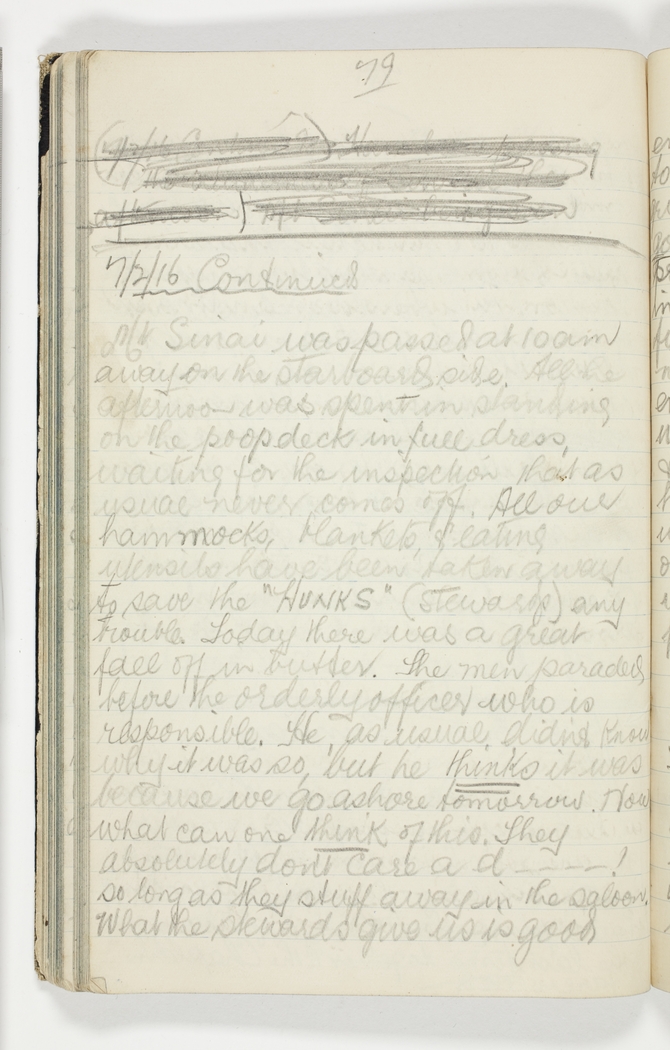 79
7/2/16 Continued
Mt Sinai was passed at 10 am
away on the starboard side. All the
afternoon was spent in standing
on the poopdeck in full dress,
waiting for the inspection that as
usual never comes off. All our
hammocks, blankets, & eating
utensils have been taken away
to save the "HUNKS" (stewards) any
trouble. Today there was a great
fall off in butter. The men paraded
before the orderly officer who is
responsible. He, as usual, didn't know
why it was so, but he thinks it was
because we go ashore tomorrow. Now
what can one think of this. They
absolutely dont care a d----!
so long as they stuff away in the saloon.
What the stewards give us is good